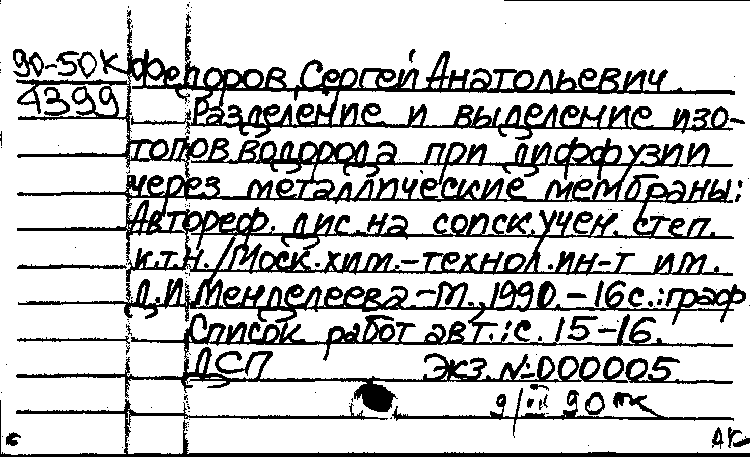 90-50к Федоров, Сергей Анатольевич.
4399 Разделение и выделение изо-
топов водорода при диффузии
через металлические мембраны:
Автореф. дис. на соиск. учен. степ.
к.т.н. / Моск. хим.-технол. ин-т им.
Д.И. Менделеева. - М., 1990. - 16 с.: граф
Список работ авт.: с. 15-16.
ДСП Экз. № 000005
9/III 90
АК